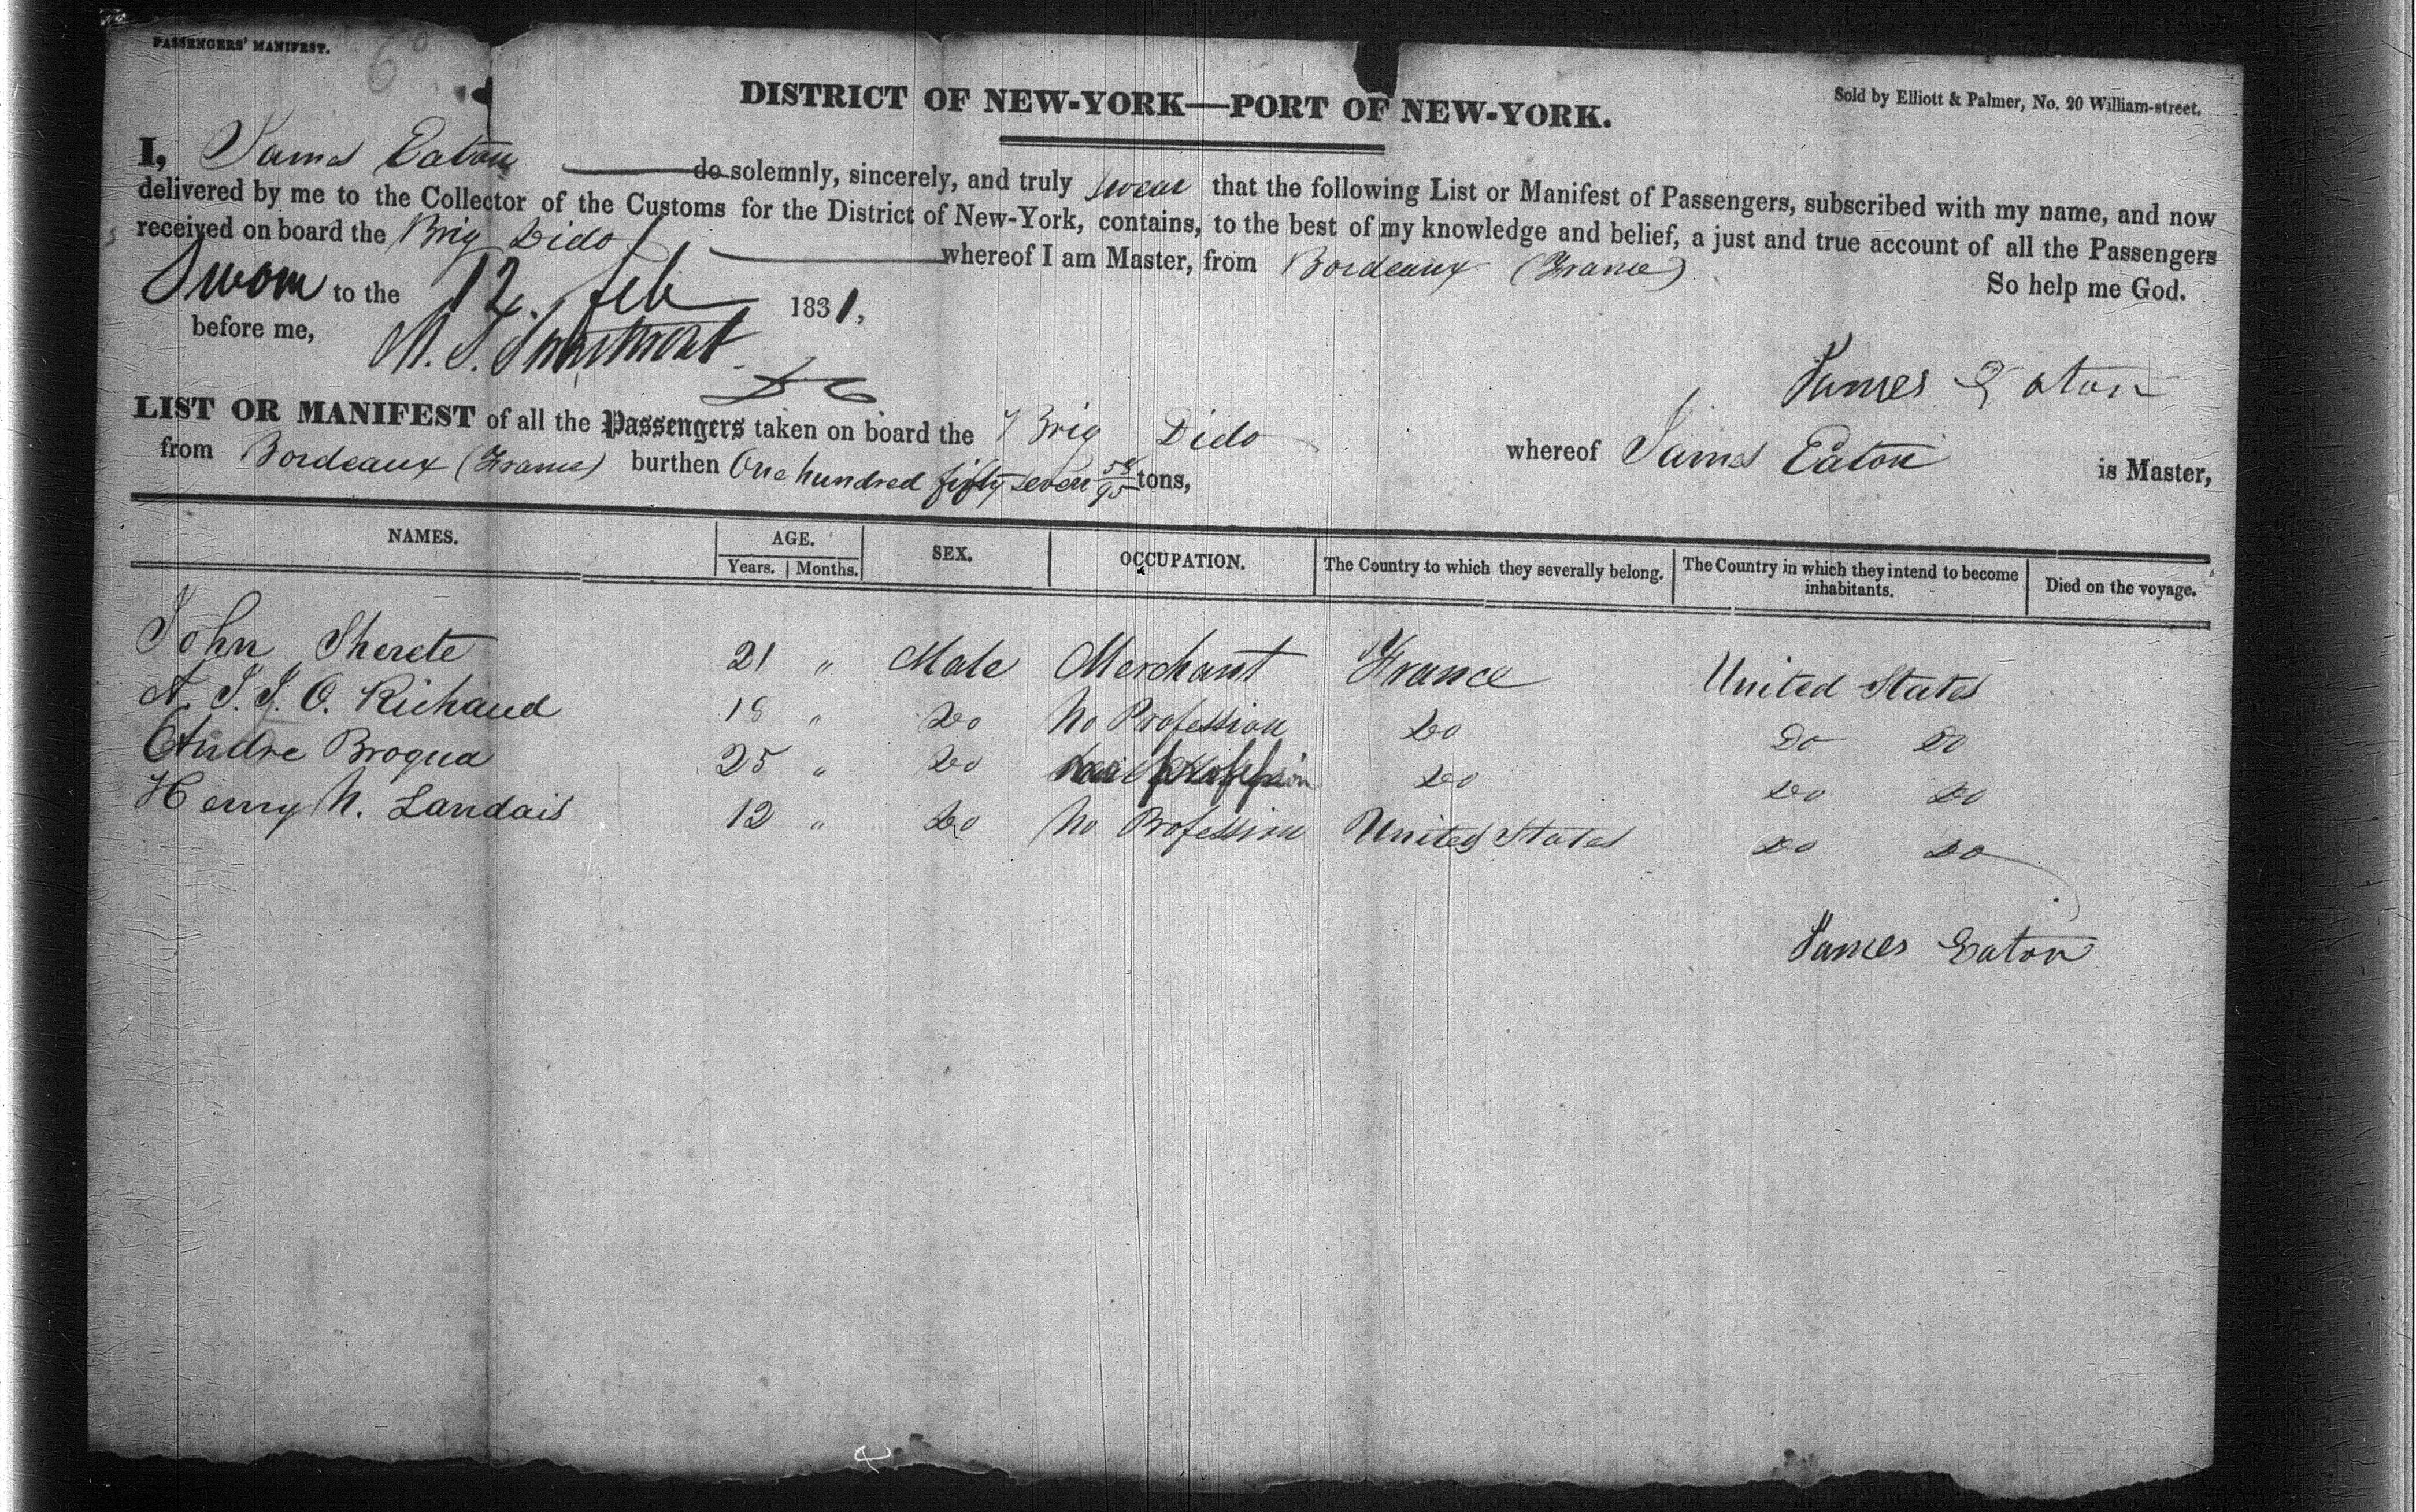 PASSENGERS' MANIFEST.
60
DISTRICT OF NEW-YORK—PORT OF NEW-YORK.
Sold by Elliott & Palmer, No. 20 William-street.
I, James Eaton do solemnly, sincerely, and truly swear that the following List or Manifest of Passengers, subscribed with my name, and now
delivered by me to the Collector of the Customs for the District of New-York, contains, to the best of my knowledge and belief, a just and true account of all the Passengers
received on board the Brig Dido whereof I am Master, from Bordeaux (France)
So help me God.
Sworn to the 12 Feb 1831,
before me,
James Eaton
LIST OR MANIFEST of all the Passengers taken on board the Brig Dido whereof James Eaton is Master,
from Bordeaux (France) burthen One hundred fifty seven 58/95 tons,
NAMES. AGE. SEX. OCCUPATION. The Country to which they severally belong. The Country in which they intend to become inhabitants. Died on the voyage.
Years. Months.
John Sherete 21 " Male Merchant France United States
A. J. J. O. Richaud 18 " Do No Profession Do Do Do
Andre Broqua 25 " Do Do Do Do
Henry N. Landais 12 " Do No Profession United States Do Do
James Eaton